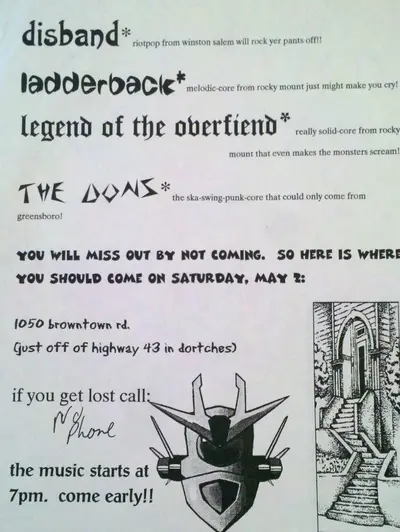 disband* riotpop from winston salem will rock yer pants off!!
ladderback* melodic-core from rocky mount just might make you cry!
legend of the overfiend* really solid-core from rocky
mount that even makes the monsters scream!
THE DONS* the ska-swing-punk-core that could only come from
greensboro!
YOU WILL MISS OUT BY NOT COMING. SO HERE IS WHERE
YOU SHOULD COME ON SATURDAY, MAY 2:
1050 browntown rd.
(just off of highway 43 in dortches)
if you get lost call:
No Phone
the music starts at
7pm. come early!!